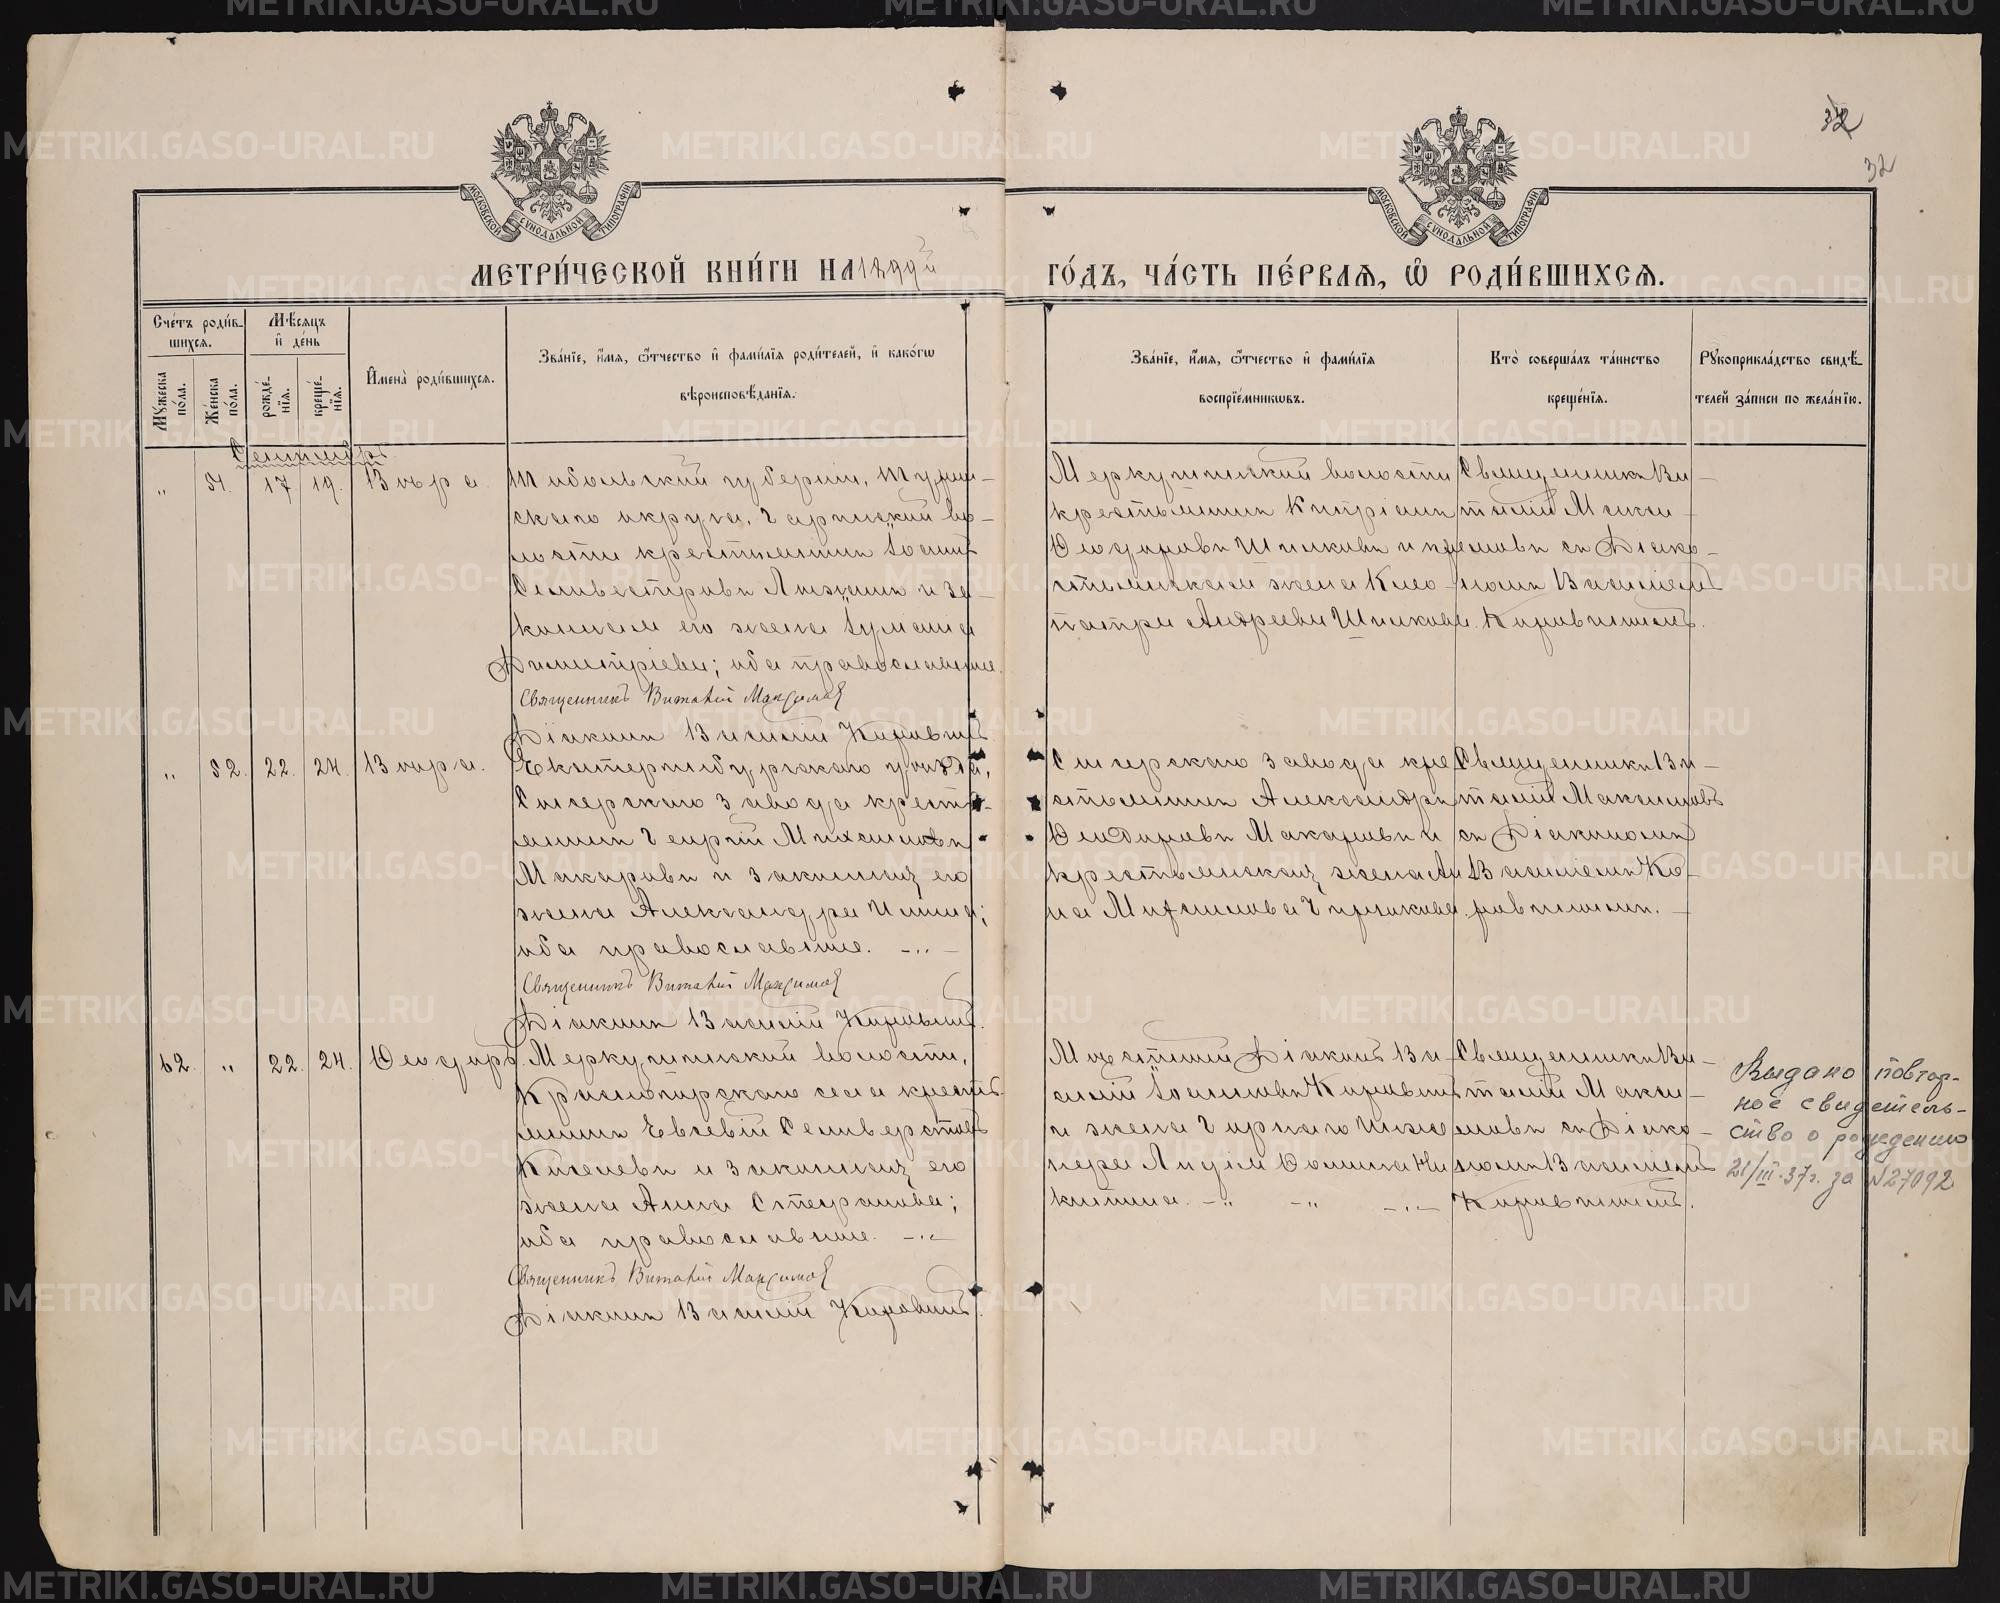 МЕТРИ́ЧЕСКОЙ КНИ́ГИ НА 1899й
ГО́ДЪ, ЧА́СТЬ ПЕ́РВАЯ, Ѡ҆ РОДИ́ВШИХСЯ.
32
МОСКОВСКОЙ СѴНОДАЛЬНОЙ ТИПОГРАФІИ
МОСКОВСКОЙ СѴНОДАЛЬНОЙ ТИПОГРАФІИ
Сче́тъ роди́в-
шихся.
Му́жеска по́ла.
Же́нска по́ла.
Мѣ́сяцъ
и҆ де́нь
рожде́-
нїя.
креще́-
нїя.
И҆мена̀ роди́вшихся.
Зва́нїе, и҆́мя, ѻ҆́тчество и҆ фами́лїя роди́телей, и҆ како́гѡ
вѣроисповѣ́данїя.
Зва́нїе, и҆́мя, ѻ҆́тчество и҆ фами́лїя
воспрїе́мникѡвъ.
Кто̀ соверша́лъ та́инство
креще́нїя.
Рꙋкоприкла́дство свидѣ́-
телей за́писи по жела́нїю.
Сентябрь
„ 51. 17. 19. Вѣра.
Тобольской губерніи, Турин-
скаго округа, Гаринской во-
лости крестьянинъ Іоаннъ
Селивестровъ и за-
конная его жена
Димитріева; оба православные.
Священникъ Виталій Максимов
Діаконъ Василій Коровинъ
Меркушинской волости
крестьянинъ Кипріанъ
Ѳеодоровъ Шишковъ и кре-
стьянская жена Клео-
патра Андреева Шишкова.
Священникъ Ви-
талій Макси-
мовъ съ Діако-
номъ Василіемъ
Коровинымъ.
„ 52. 22. 24. Вѣра.
Екатеринбургскаго уѣзда,
Сысерскаго Завода кресть-
янинъ Георгій Михаиловъ
Макаровъ и законная его
жена Александра Ильина;
оба православные.
Священникъ Виталій Максимов
Діаконъ Василій Коровинъ.
Сысерскаго Завода кре-
стьянинъ Александръ
Ѳеодоровъ Макаровъ и
крестьянская жена Ан-
на Михаилова
Священникъ Ви-
талій Максимовъ
съ Діакономъ
Василіемъ Ко-
ровинымъ.
62. „ 22. 24. Ѳеодоръ.
Меркушинской волости,
Красногорскаго села кресть-
янинъ Евсевій Селиверстовъ
Киселевъ и законная его
жена Анна Стефанова;
оба православные.
Священникъ Виталій Максимов
Діаконъ Василій Коровинъ.
Мѣстный Діаконъ Ва-
силій Іоанновъ Коровинъ
и жена Горнаго
Лидія Ни-
китина.
Священникъ Ви-
талій Макси-
мовъ съ Діако-
номъ Василіемъ
Коровинымъ.
Выдано повтор-
ное свидетель-
ство о рождении
21/III-37г. за №27092